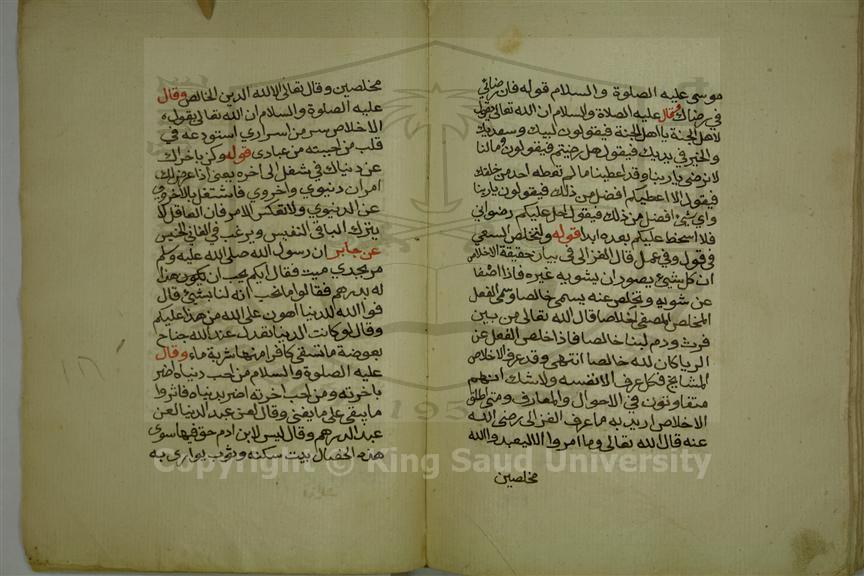 موسى عليه الصلوة والسلام قوله فان رضائي
في رضاك وقال عليه الصلاة والسلام ان الله تعالى يقول
لاهل الجنة يا اهل الجنة فيقولون لبيك وسعديك
والخير في يديك فيقول هل رضيتم فيقولون ومالنا
لا نرضى يا ربنا وقد اعطيتنا ما لم تعطه احد من خلقك
فيقول الا اعطيكم افضل من ذلك فيقولون يا ربنا
واي شيء افضل من ذلك فيقول احل عليكم رضواني
فلا اسخط عليكم بعده ابدا قوله ولتخلص السعي
في قول وفي عمل قال الغزالى في بيان حقيقة الاخلاص
ان كل شيئ يتصور ان يشوبه غيره فاذا صفا
عن شوبه وتخلص عنه يسمى خالصا وسمى الفعل
المخلص المصفى اخلاصا قال الله تعالى من بين
فرث ودم لبنا خالصا فاذا خلص الفعل عن
الريا كان لله خالصا انتهى وقد عرف الاخلاص
المشايخ فكل عرف الا نفسه ولا شك انتهم
متفاوتون في الاحوال والمعارف ومتى اطلق
الاخلاص اريد به ما عرف الغزالى رضى الله
عنه قال الله تعالى وما امروا الا ليعبدوا الله
مخلصين
مخلصين وقال تعالى الا لله الدين الخالص وقال
عليه الصلوة والسلام ان الله تعالى يقول
الاخلاص سر من اسراري استودعه في
قلب من احببته من عبادى قوله وكن باخراك
عن دنياك في شغل الى آخره يعنى اذا عرض لك
امران دنيوي واخروي فاشتغل بالاخروي
عن الدنيوي ولا تعكس الامر فان العاقل لا
يترك الباقى النفيس ويرغب في الفاني الخسيس
عن جابر ان رسول الله صلى الله عليه وسلم
مر بجدي ميت فقال ايكم يحب ان يكون هذا
له بدرهم فقالوا ما نحب انه لنا بشيئ قال
فوالله للدنيا اهون على الله من هذا عليكم
وقال لو كانت الدنيا تعدل عند الله جناح
بعوضة ما سقى كافرا منها شربة ماء وقال
عليه الصلوة والسلام من احب دنياه اضر
باخرته ومن احب اخرته اضر بدنياه فاثروا
ما يبقى على ما يفنى وقال لعن عبد الدنيا لعن
عبد الدرهم وقال ليس لابن ادم حق فيها سوى
هذه الخصال بيت يسكنه وثوب يوارى به
Copyright © King Saud University
195